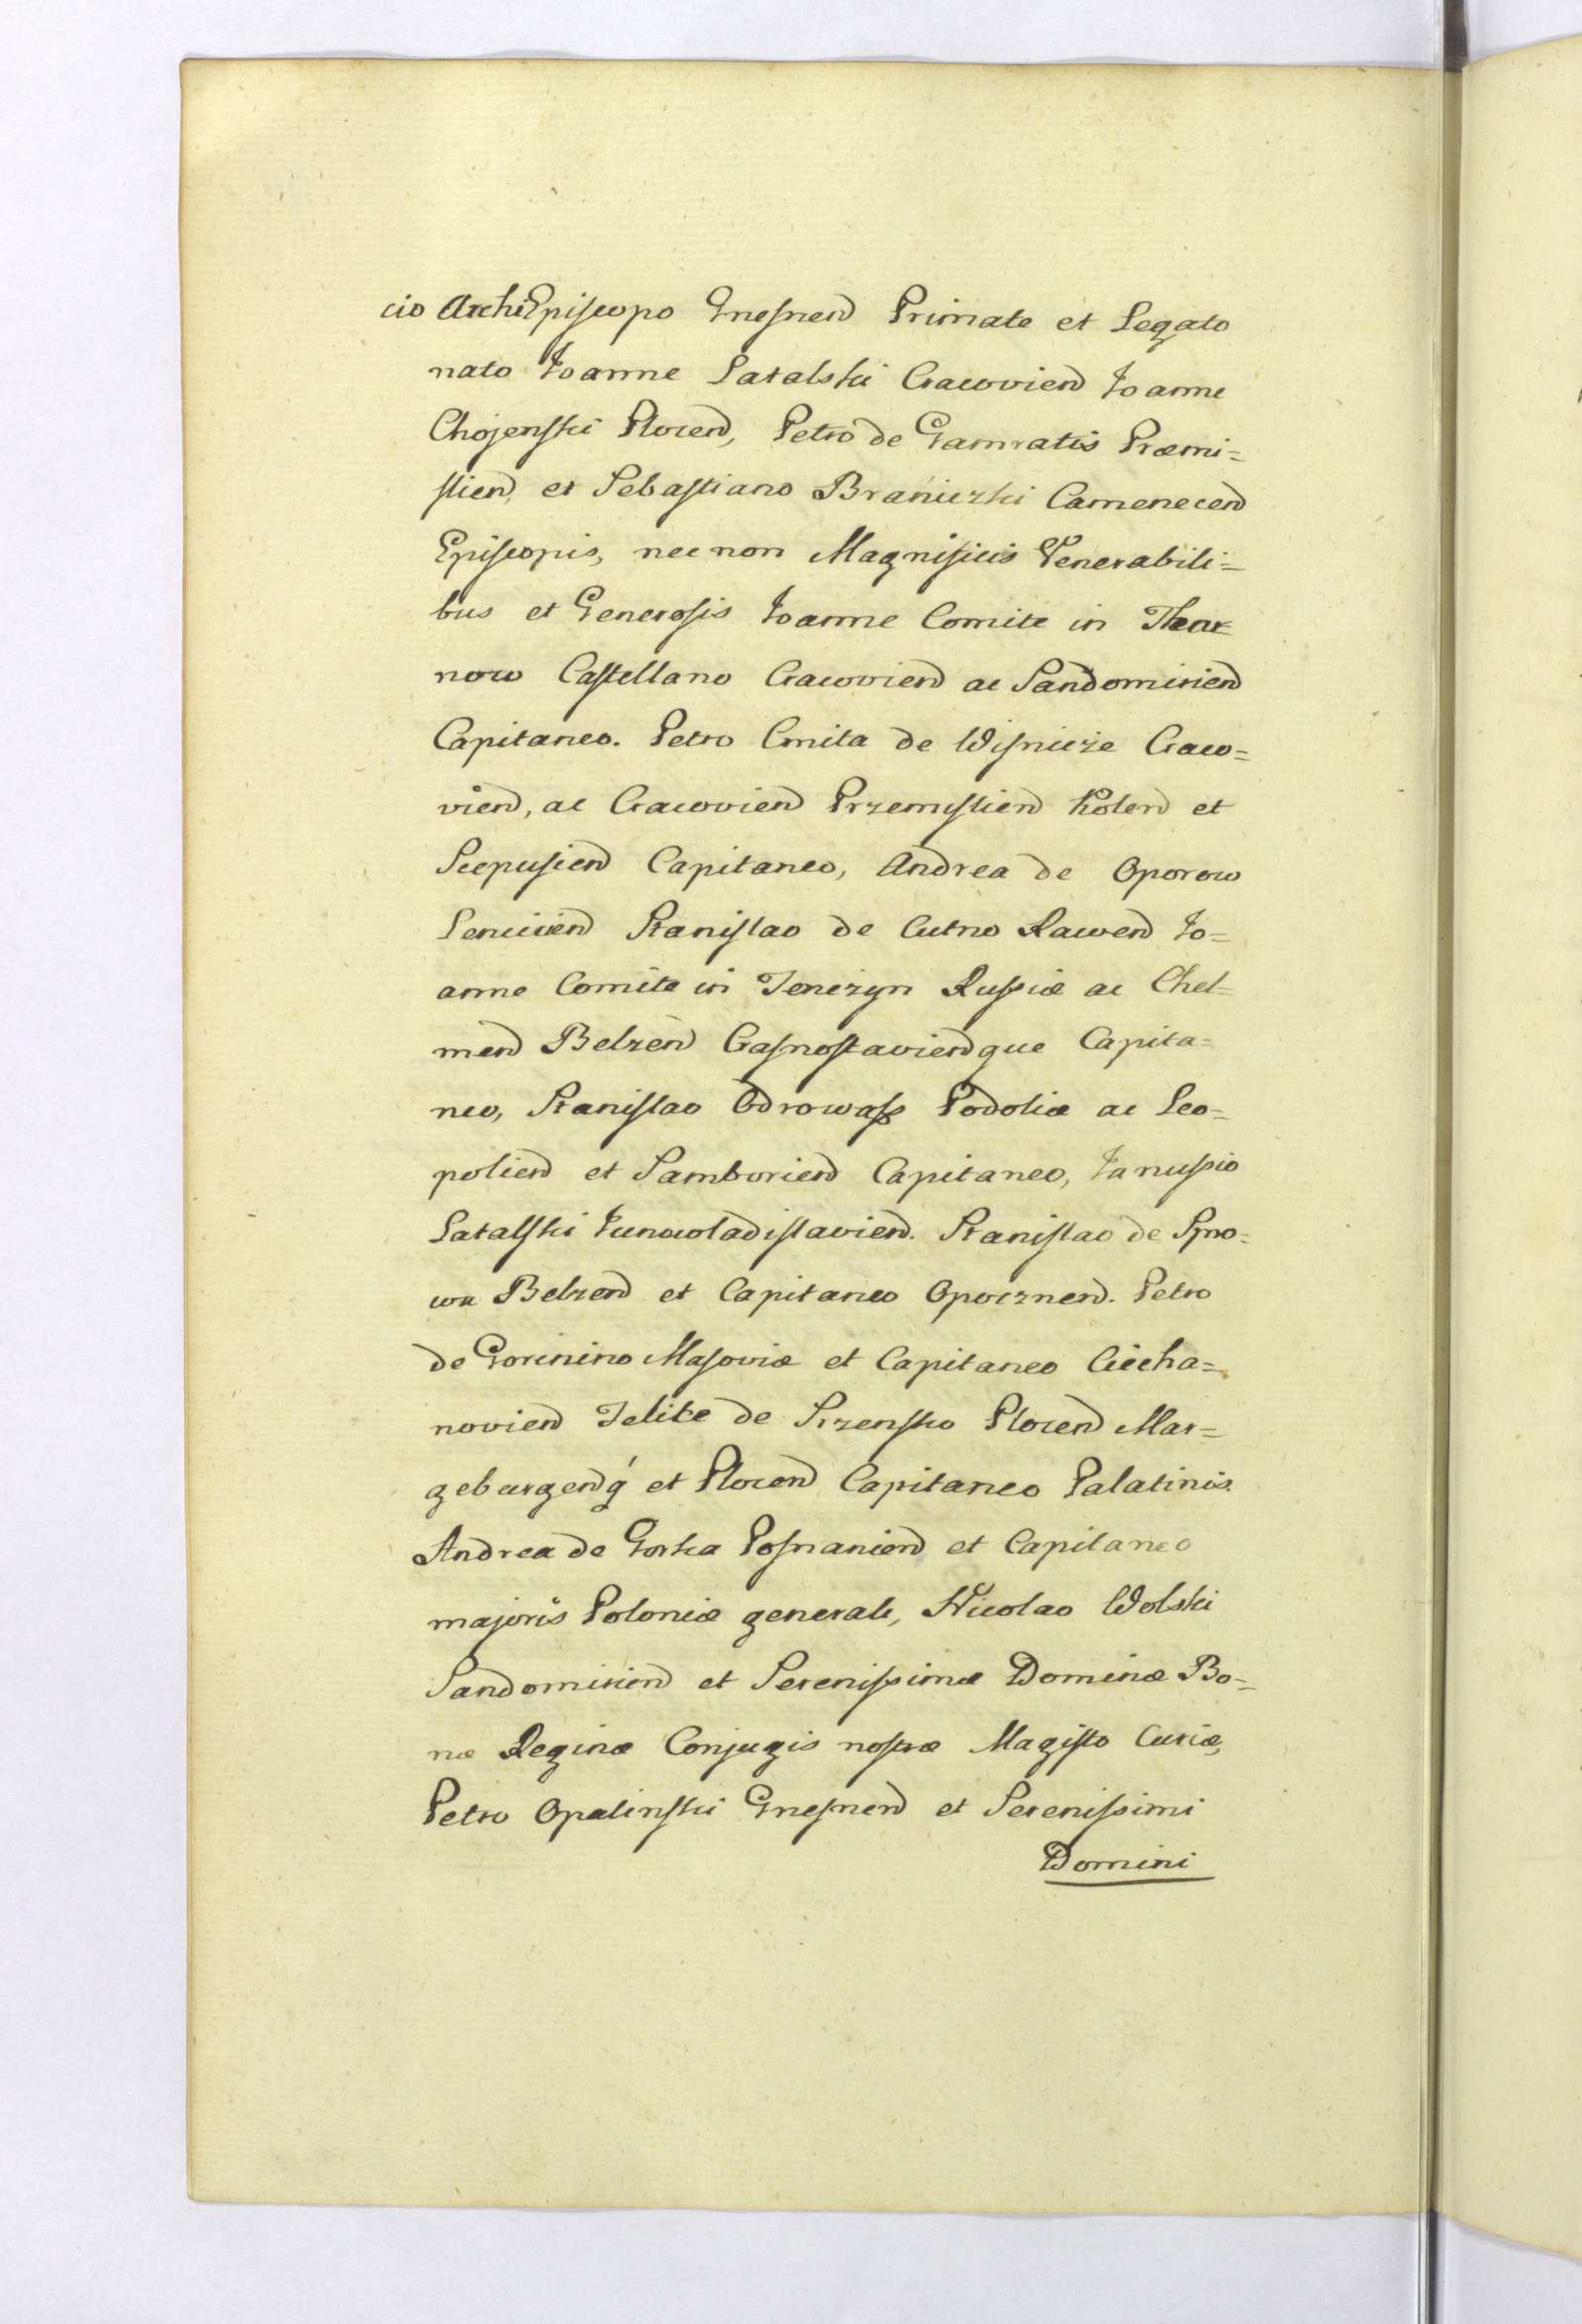 cio ArchiEpiscopo Gnesnen Primate et Legato
nato Joanne Latalski Cracovien Joanne
Chojenski Plocen, Petro de Gamratis Præmi=
slien, et Sebastiano Braniczki Camenecen
Episcopis, nec non Magnificis Venerabili=
bus et Generosis Joanne Comite in Thar
now Castellano Cracovien ac Sandomirien
Capitaneo. Petro Cmita de Wisnicze Craco=
vien, ac Cracovien Przemyslien Kolen et
Scepusien Capitaneo, Andrea de Oporow
Lencicien Stanislao de Cutno Rawen Jo=
anne Comite in Tenczyn Russiæ ac Chel=
men Belzen Crasnostavienque Capita=
neo, Stanislao Odrowass Podoliæ ac Leo=
polien et Samborien Capitaneo, Janussio
Latalski Junowladislavien. Stanislao de Spro=
wa Belzen et Capitaneo Opocznen. Petro
de Gorinino Masoviæ et Capitaneo Ciecha=
novien Felice de Srzensko Plocen Mar=
geburgenq́ et Plocen Capitaneo Palatinis.
Andrea de Gorka Posnanien et Capitaneo
majoris Poloniæ generali, Nicolao Wolski
Sandomirien et Serenissimæ Dominæ Bo=
næ Reginæ Conjugis nostræ Magisto Curiæ,
Petro Opalinski Gnesnen et Serenissimi
Domini